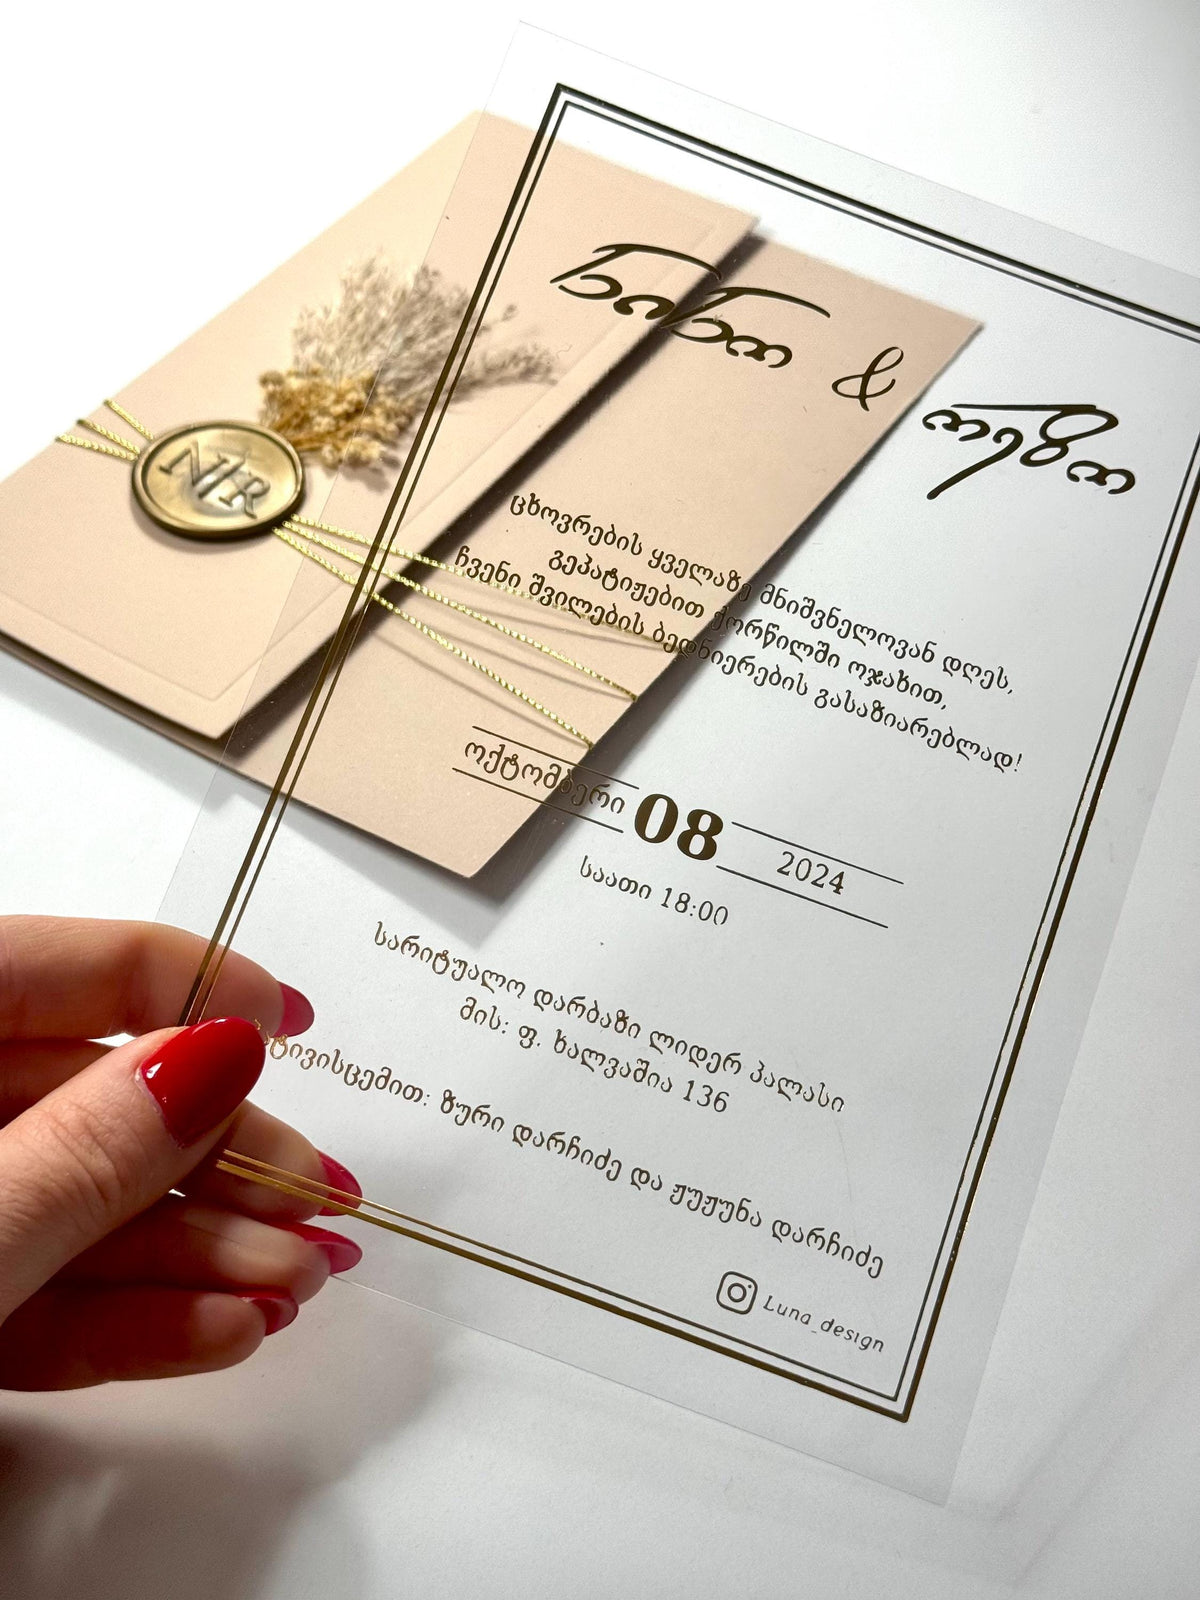 NR
ნინო & რეზო
ცხოვრების ყველაზე მნიშვნელოვან დღეს,
გეპატიჟებით ქორწილში ოჯახით,
ჩვენი შვილების ბედნიერების გასაზიარებლად!
ოქტომბერი 08 2024
საათი 18:00
სარიტუალო დარბაზი ლიდერ პალასი
მის: ფ. ხალვაშია 136
პატივისცემით: ზური დარჩიძე და ჟუჟუნა დარჩიძე
Luna_design